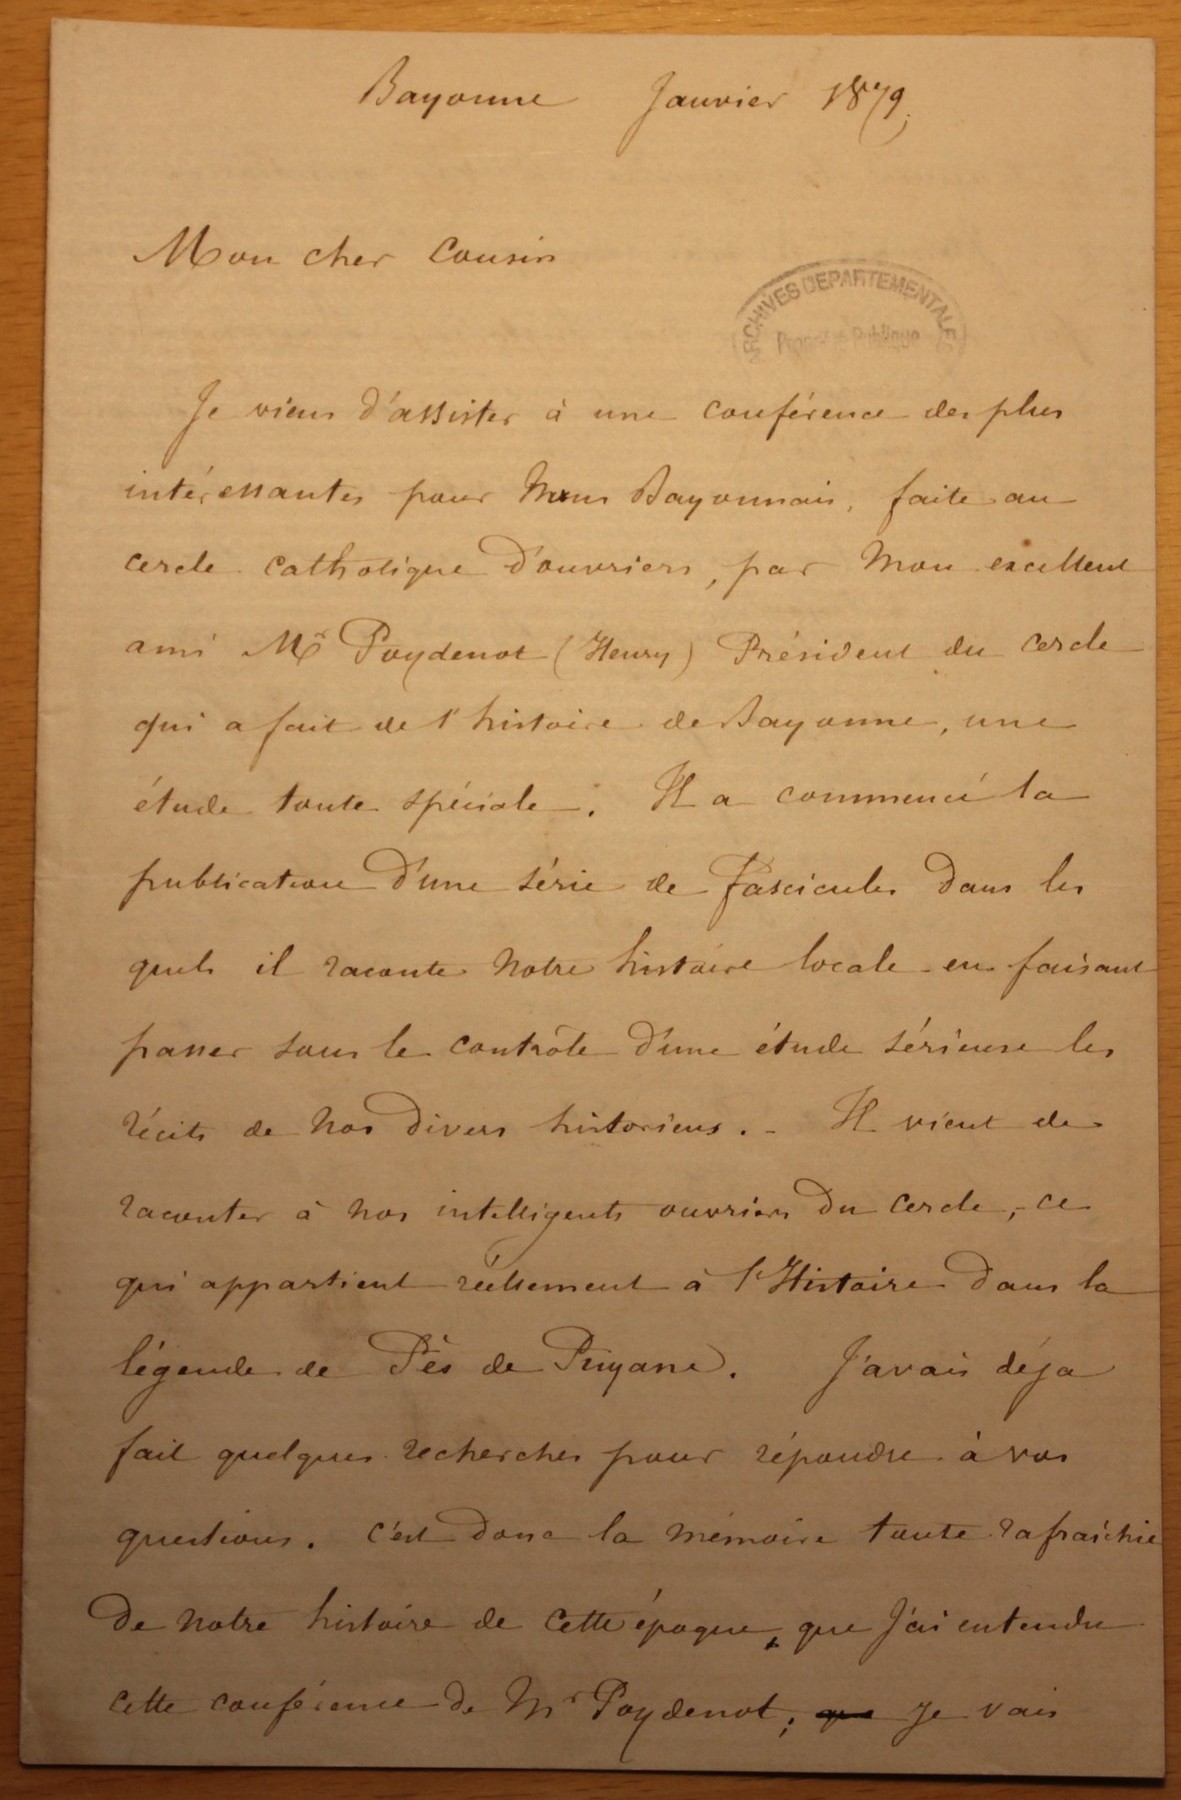 Bayonne Janvier 1879.
Mon cher Cousin
ARCHIVES DEPARTEMENTALES
Propriété Publique
Je viens d'assister à une conférence des plus
intéressantes pour Nous Bayonnais, faite au
cercle catholique d'ouvriers, par Mon excellent
ami Mr Poydenot (Henry) Président du cercle
qui a fait de l'histoire de Bayonne, une
étude toute spéciale. Il a commencé la
publication d'une série de Fascicules dans les
quels il raconte Notre histoire locale en faisant
passer sous le contrôle d'une étude sérieuse les
récits de Nos divers historiens. - Il vient de
raconter à nos intelligents ouvriers du cercle, ce
qui appartient réellement à l'Histoire dans la
légende de Pès de Puyane. J'avais déja
fait quelques recherches pour répondre à vos
questions. c'est donc la mémoire toute rafraichie
De notre histoire de cette époque, que J'ai entendu
cette conférence de Mr Poydenot; que Je vais